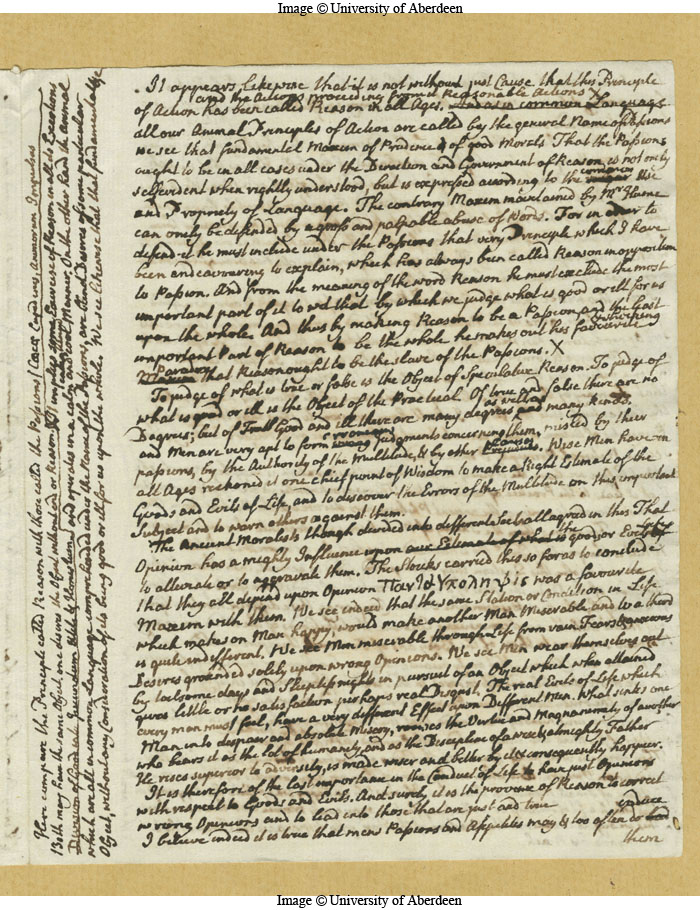 Image © University of Aberdeen
. It appears likewise that it is not without just Cause that this Principle
and the Actions proceeding from it Reasonable Actions X
of Action has been called Reason in all Ages. And as in common Language
all our Animal Principles of Action are called by the general Name of Passions
we see that fundamental Maxim of Prudence & of good Morals That the Passions
ought to be in all cases under the Direction and Government of Reason is not only
common
selfevident when rightly understood, but is expressed according to the Use
and Propriety of Language. The contrary Maxim maintained by Mr Hume
can onely be defended by a gross and palpable abuse of Words. For in order to
defend it he must include under the Passions that very Principle which I have
been endeavouring to explain, which has always been called Reason in opposition
to Passion. And from the meaning of the word Reason he must exclude the most
important part of it to wit that by which we judge what is good or ill for us
upon the whole. And thus by making Reason to be a Passion and the least
important Part of Reason to be the whole he makes out his favourite
shocking
Paradox
that Reason ought to be the slave of the Passions. X
To judge of what is true or false is the Object of Speculative Reason. To judge of
what is good or ill is the Object of the Practical. Of true and false there are no
as well as
Degrees; but of Good and ill there are many degrees and many kinds,
and Men are very apt to form erroneous judgments concerning them, misled by their
passions, by the Authority of the Multitude, & by other Causes. Wise Men have in
all Ages reckoned it one chief point of Wisdom to make a Right Estimate of the
Goods and Evils of Life, and to discover the Errors of the Multitude on this important
Subject and to warn others against them.
The Ancient Moralists though divided into different Sects all agreed in this That
Opinion has a mighty Influence upon our Estimate of what is good or the Evils of Life
to alleviate or to aggravate them. The Stoicks carried this so far as to conclude
that they all depend upon Opinion Παντα Υποληψις was a favourite
Maxim with them. We see indeed that the same Station or Condition in Life
which makes on Man happy, would make another Man Miserable and to a third
is quite indifferent. We see Men miserable through Life from vain Fears & anxious
Desires grounded solely upon wrong Opinions. We see Men wear themselves out
by toilsome days and sleepless nights in pursuit of an Object which when attained
gives little or no satisfaction perhaps real Disgust. The real Evils of Life which
every man must feel, have a very different Effect upon Different Men. What sinks one
Man into despair and absolute misery, rouses the Vertue and Magnanimity of another
who bears it as the lot of humanity and as the Discipline of a wise & almighty Father
He rises superior to adversity, is made wiser and better by it & consequently happier.
It is therefore of the last importance in the Conduct of Life to have just Opinions
with respect to Goods and Evils. And surely it is the province of Reason to correct
wrong Opinions and to lead into those that are just and true
induce
I believe indeed it is true that mens Passions and Appetites may & too often do lead
them
Here compare the Principle called Reason with those called the Passions
Both may have the same Object one desires the Object without or Reason. It implies some Exercise of Reason in all its Exertions
and operates in a calm and cool Manner. On the other hand the Animal
which are all in common Language comprehended under the Name of the Passions, are blind Desires of some particular
Object, without any Consideration of its being good or ill for us upon the whole. We see likewise that that fundamental
Image © University of Aberdeen